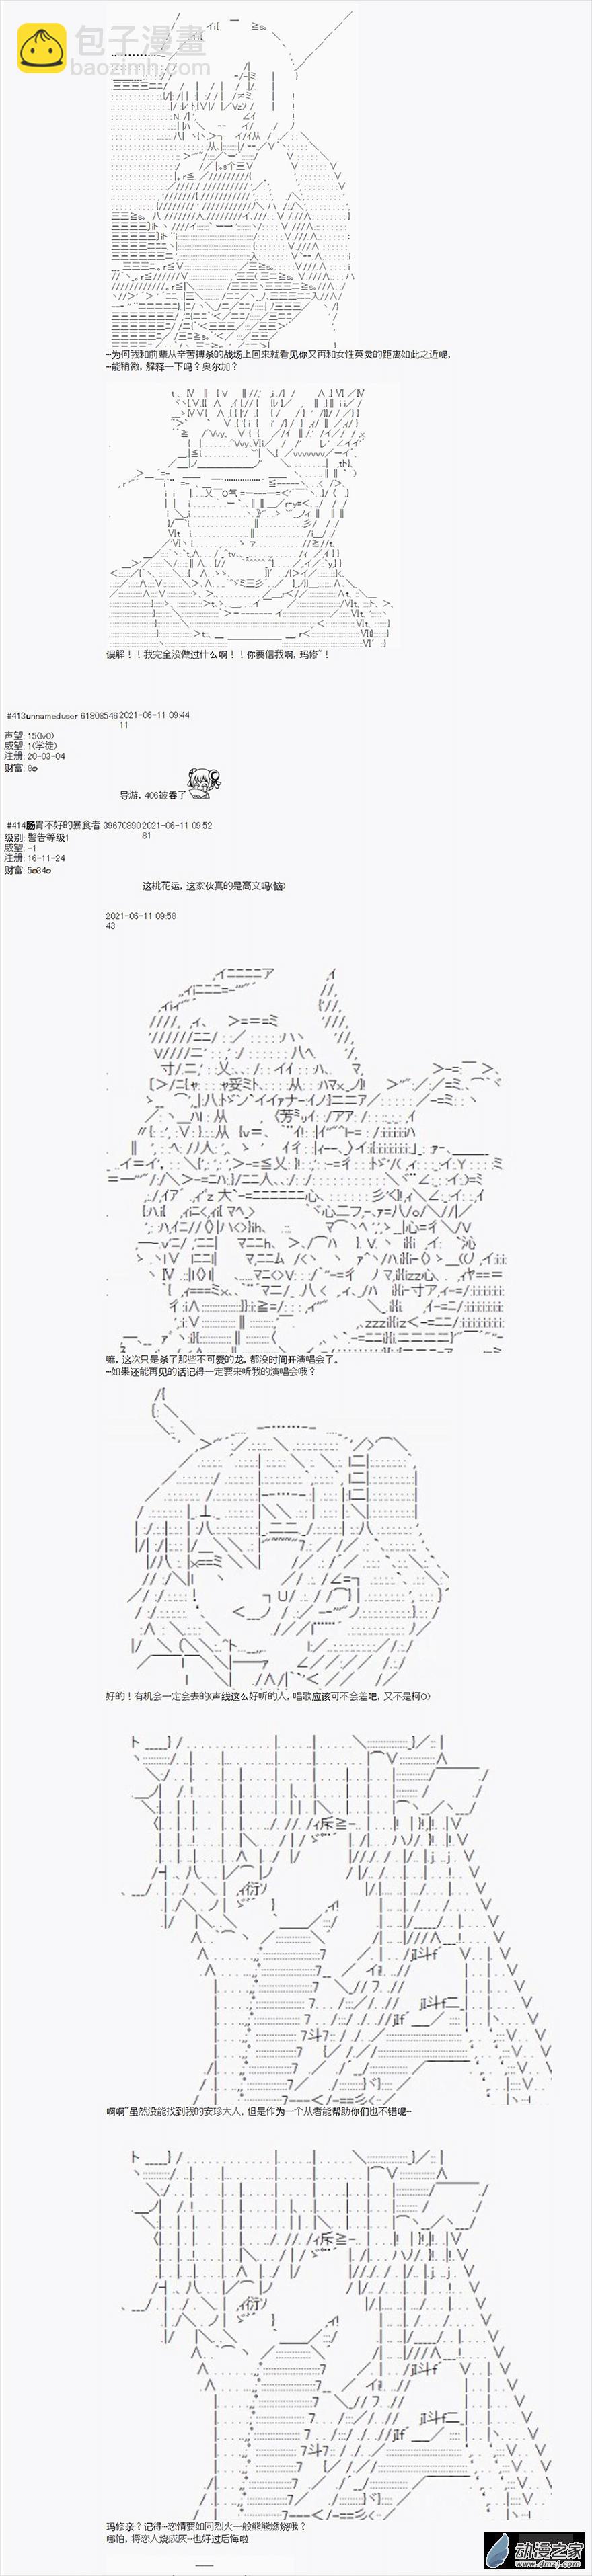 包子漫畫
baozimh.com
~为何我和前辈从辛苦搏杀的战场上回来就看见你又再和女性英灵的距离如此之近呢,
~能稍微, 解释一下吗？奥尔加？
误解！！我完全没做过什么啊！！你要信我啊, 玛修~！
#413unnameduser 61808546 2021-06-11 09:44
11
声望: 15(lv0)
威望: 1(学徒)
注册: 20-03-04
财富: 8
导游, 406被吞了
#414肠胃不好的暴食者 39670890 2021-06-11 09:52
81
级别: 警告等级1
威望: -1
注册: 16-11-24
财富: 5 34
这桃花运, 这家伙真的是高文吗(恼)
2021-06-11 09:58
43
嘛, 这次只是杀了那些不可爱的龙, 都没时间开演唱会了。
~如果还能再见的话记得一定要来听我的演唱会哦？
好的！有机会一定会去的(声线这么好听的人, 唱歌应该可不会差吧, 又不是柯O)
啊啊~虽然没能找到我的安珍大人, 但是作为一个从者能帮助你们也不错呢~
玛修亲？记得~恋情要如同烈火一般熊熊燃烧哦？
哪怕, 将恋人烧成灰~也好过后悔啦
动漫之家
www.dmzj.com